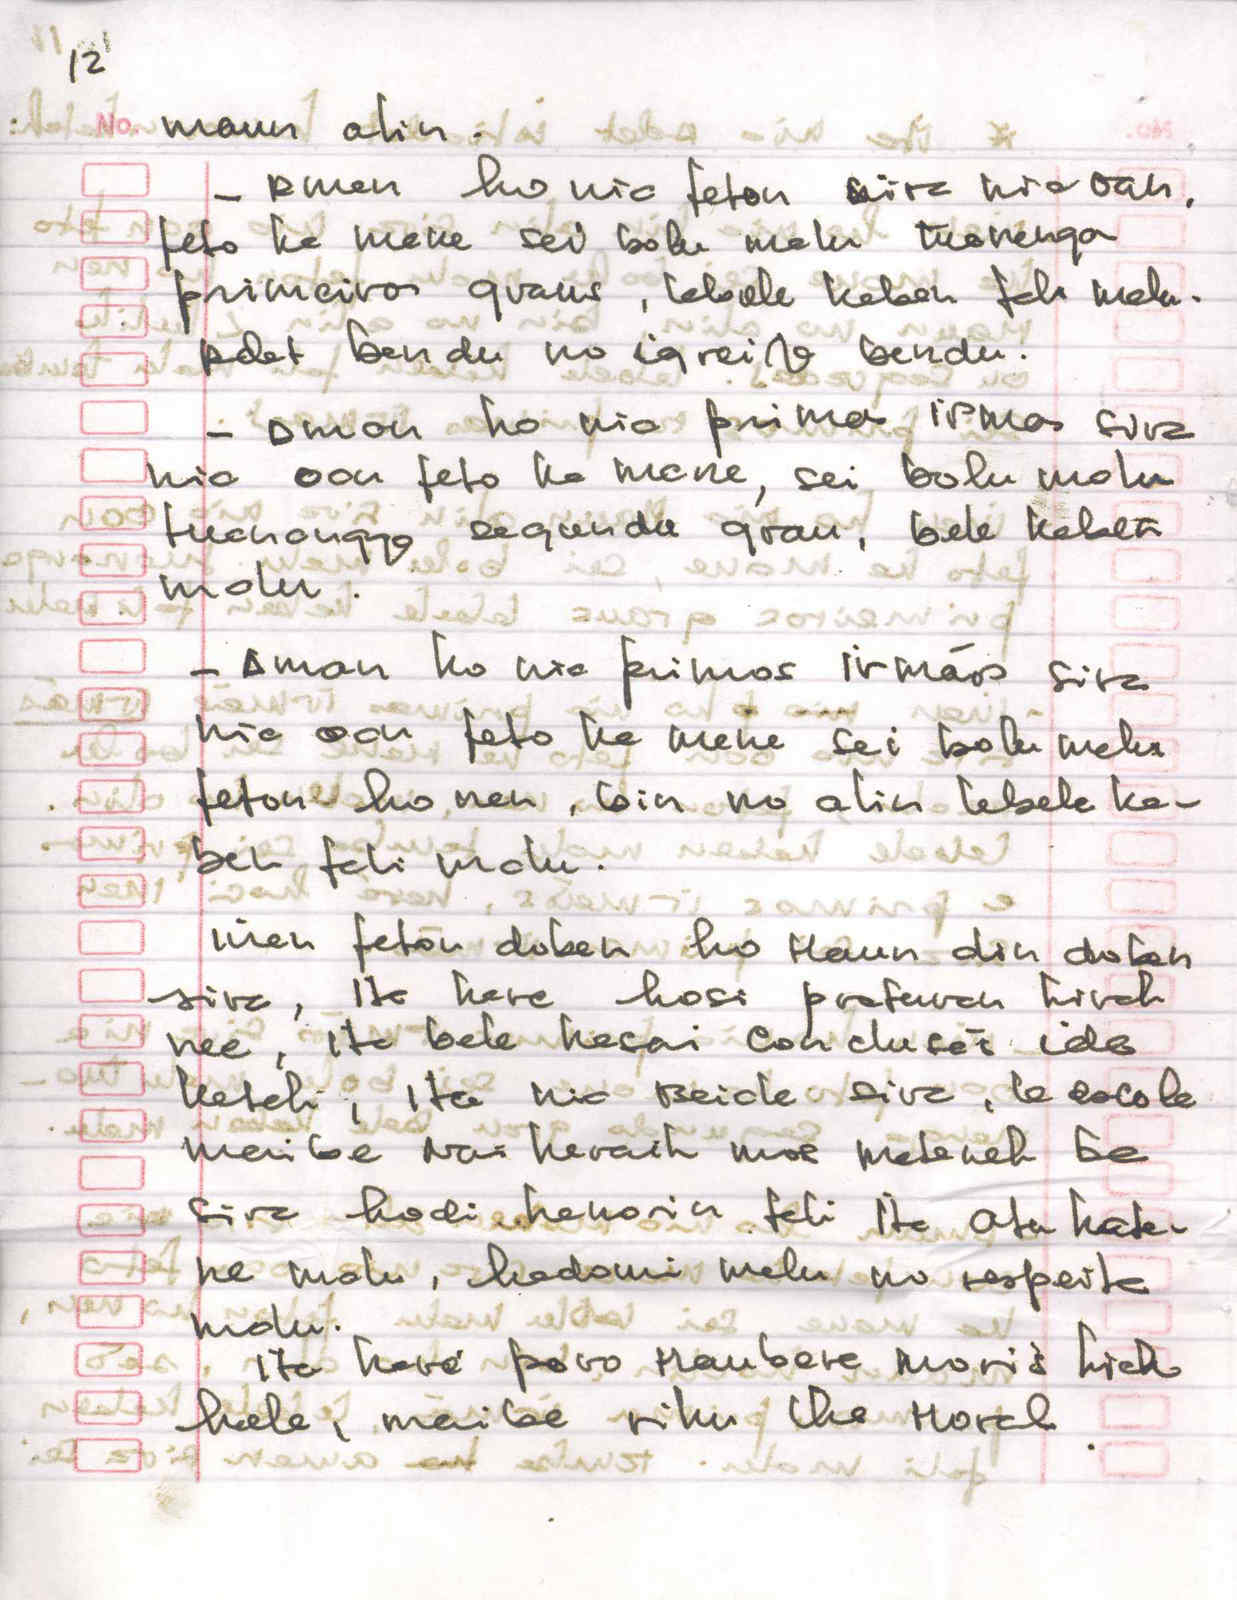 12
No. maun alin.
- Aman ho nia feton sira nia oan,
feto ka mane sei bolu malu tuananga
primeiros graus, labele kaben fali malu.
Adat bandu no igreija bandu.
- Aman ho nia primas irmas sira
nia oan feto ka mane, sei bolu malu
tuananga segundu grau, bele kaben
malu.
- Aman ho nia primos irmãos sira
nia oan feto ka mane sei bolu malu
feton ho nan, bin no alin labele ka-
ben fali malu.
inan feton doben ho maun alin doben
sira, ita hare hosi preturan hirak
nee, ita bele hasai conclusãi ida
katak, ita nia Beiala sira, la escola
maibe nai haraik mos matenek ba
sira hodi hanorin fali ita atu hate-
ne malu, hadomi malu no respeita
malu.
ita hare povo Maubere moris kiak
hela, maibe riku iha Moral